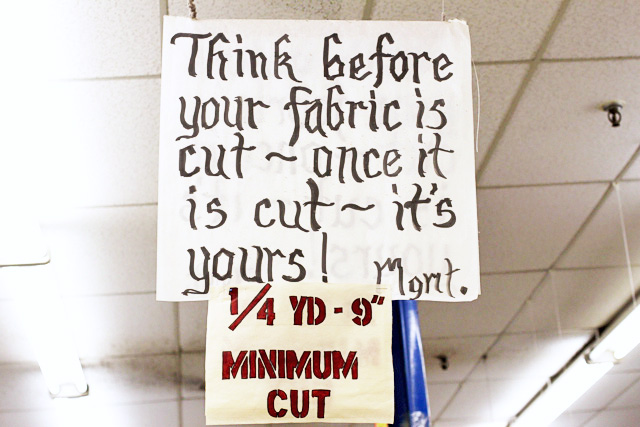 Think before
your fabric is
cut ~ once it
is cut ~ it's
yours! Mgnt.
1/4 YD - 9"
MINIMUM
CUT